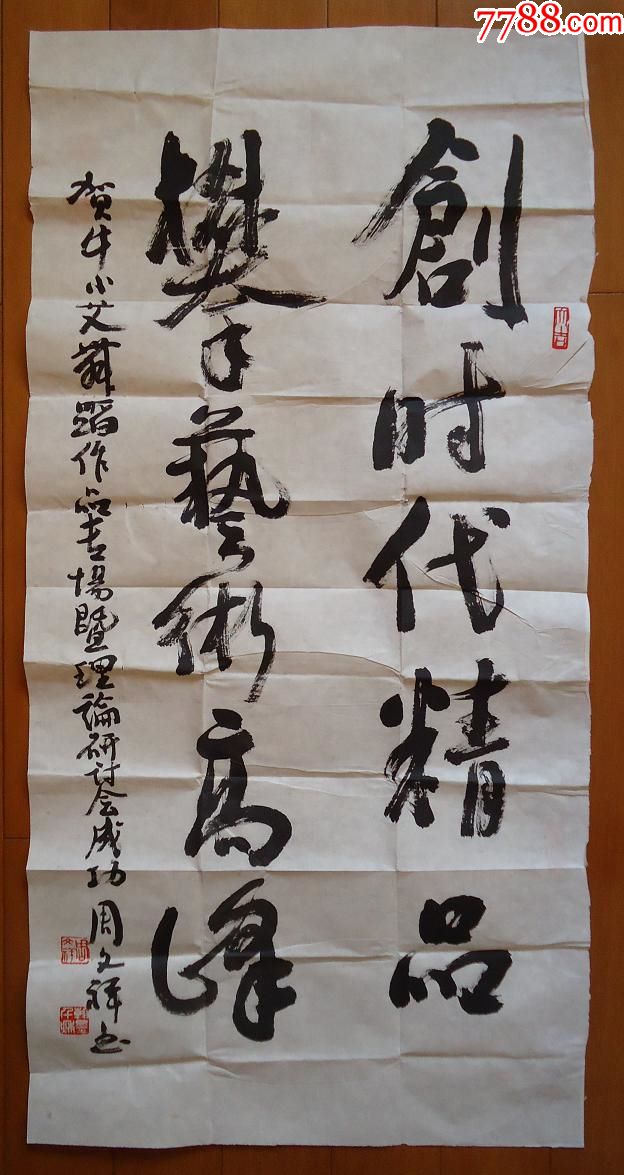 7788.com
創时代精品
攀藝術高峰
贺牛小艾舞蹈作品专場暨理論研讨会成功 周文祥书